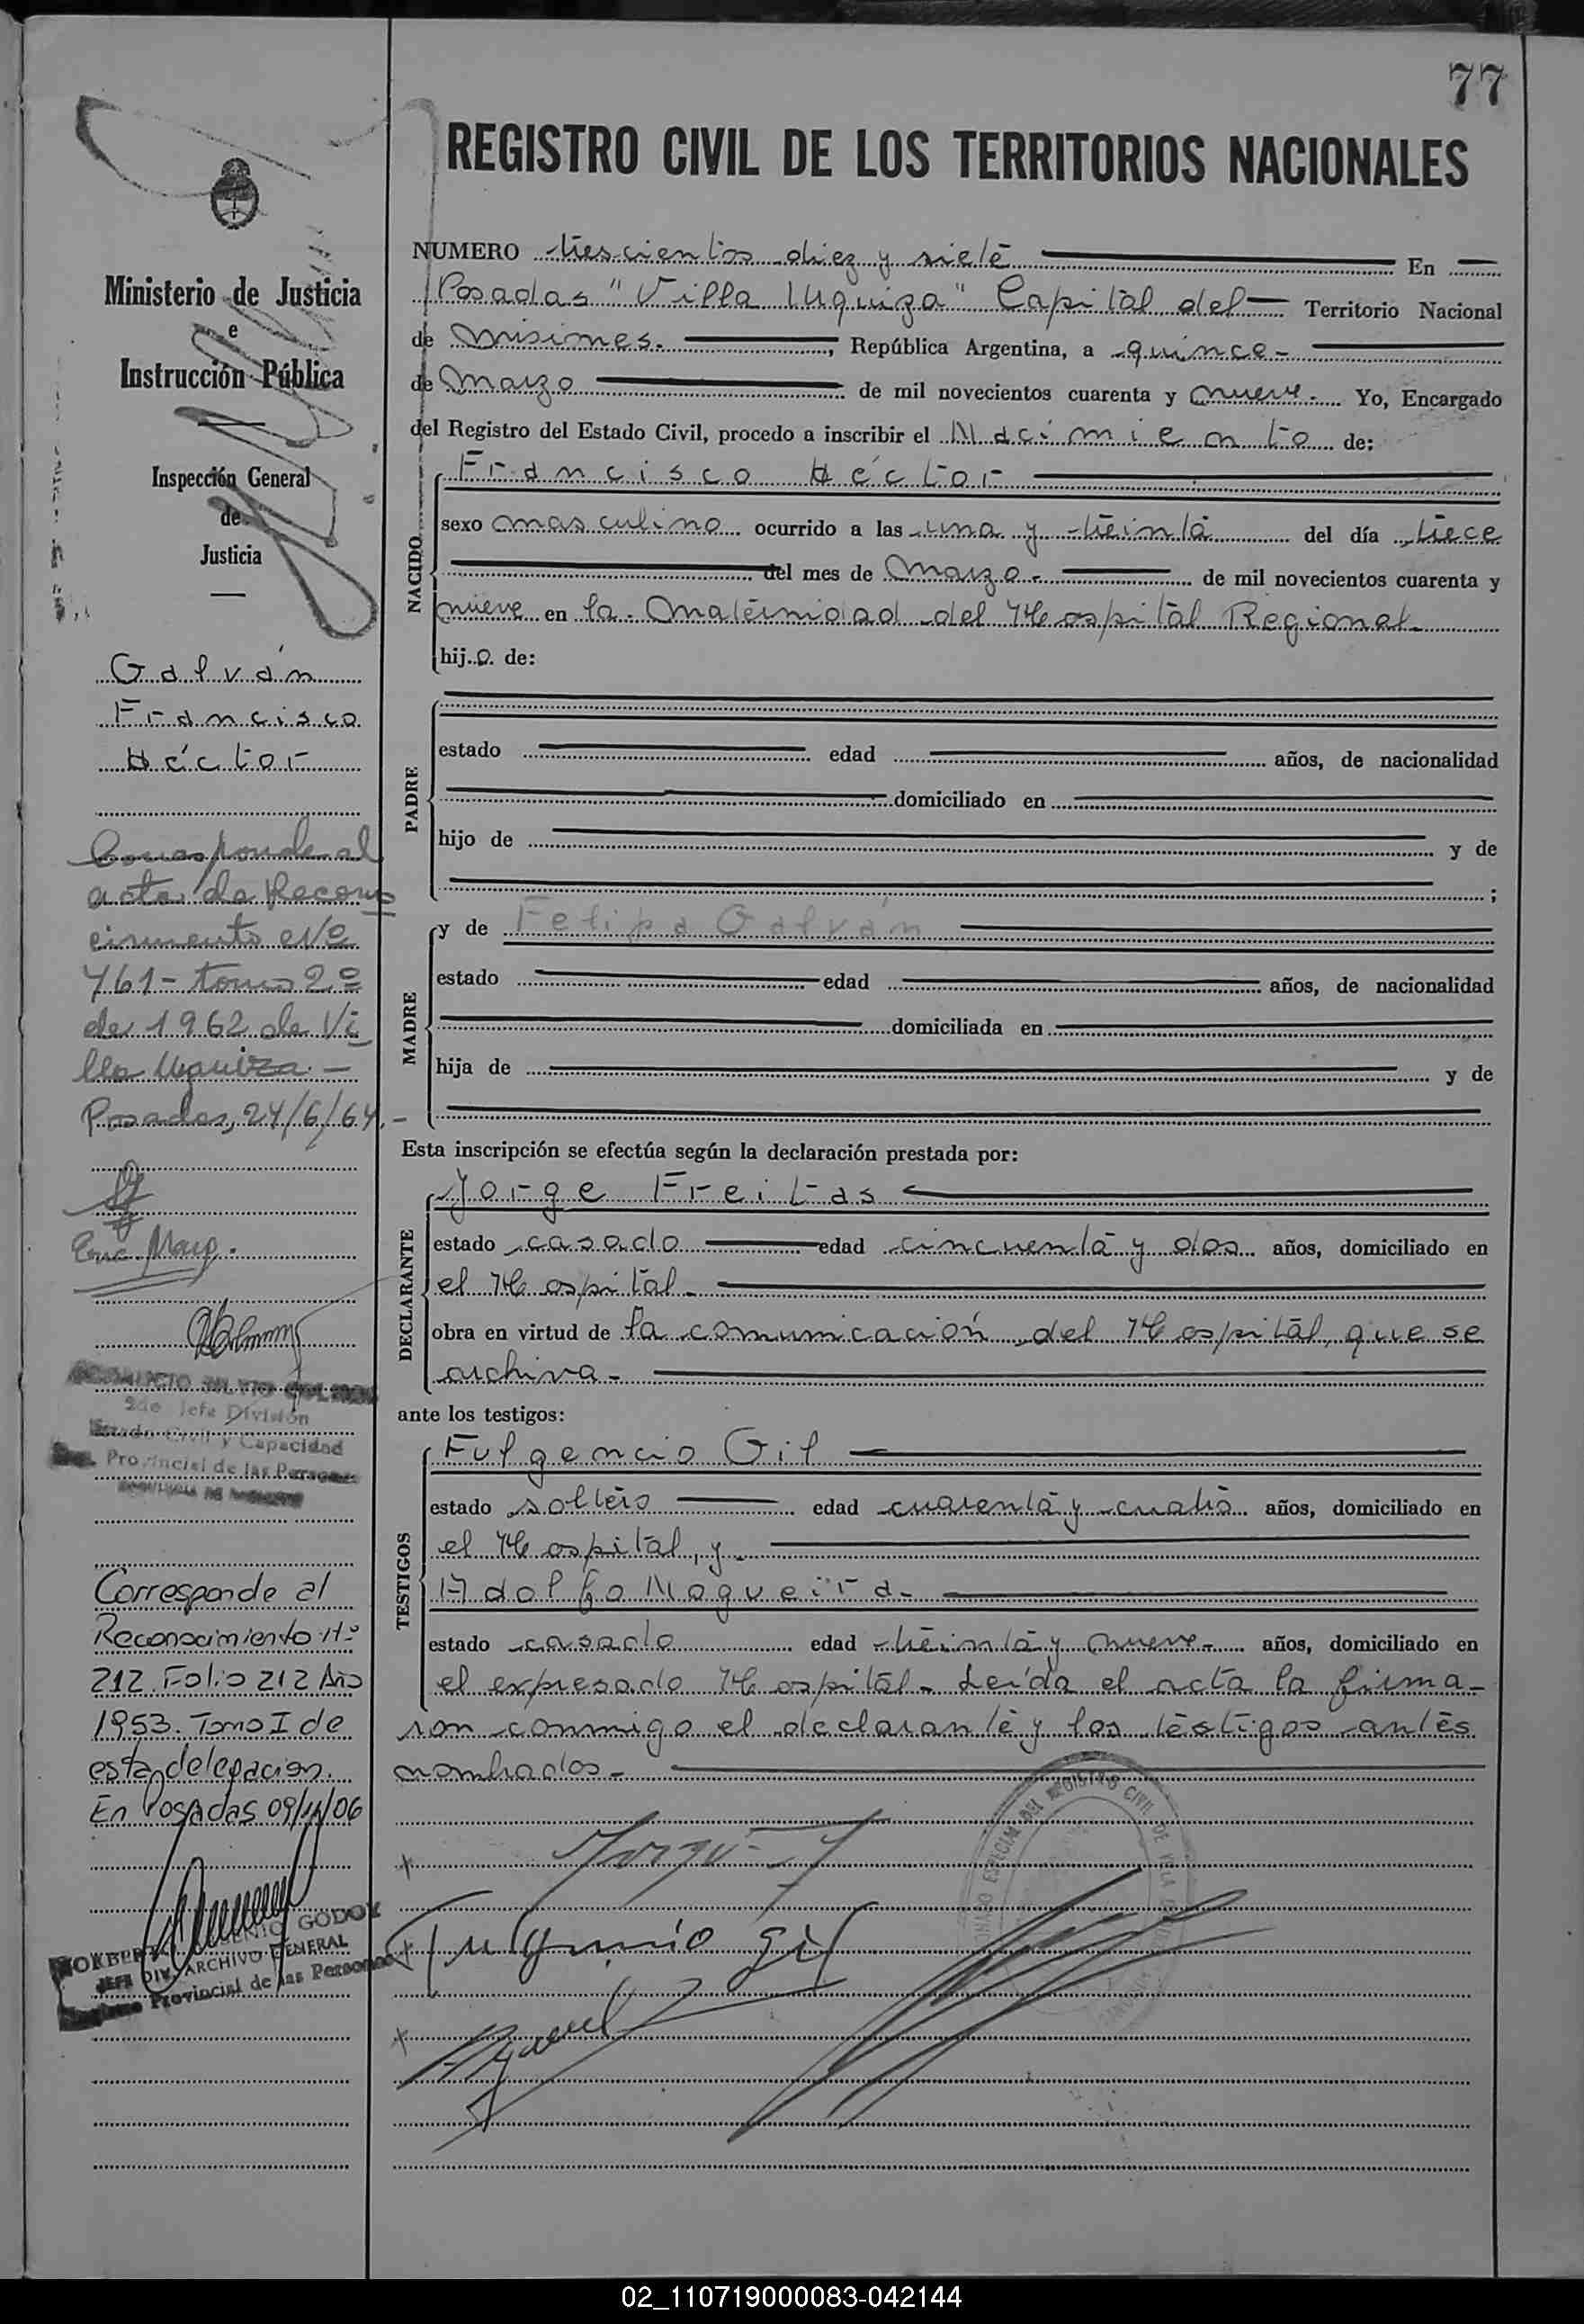 77
REGISTRO CIVIL DE LOS TERRITORIOS NACIONALES
Ministerio de Justicia
e
Instrucción Pública
Inspección General
de
Justicia
Galván
Francisco
Héctor
Corresponde al
acta de Recono
cimiento Nº
761 - tomo 2º
de 1962 de Vi
lla Urquiza. -
Posadas, 24/6/64. -
2do Jefe División
Estado Civil y Capacidad
Provincial de las Personas
Corresponde al
Reconocimiento Nº
212 Folio 212 Año
1953. Tomo I de
esta delegacion.
En Posadas 09/11/06
GODOY
JEFE DIV. ARCHIVO GENERAL
Provincial de las Personas
NUMERO trescientos diez y siete En
Posadas "Villa Urquiza" Capital del Territorio Nacional
de Misiones. , República Argentina, a quince -
de Marzo de mil novecientos cuarenta y nueve. Yo, Encargado
del Registro del Estado Civil, procedo a inscribir el Nacimiento de:
NACIDO
Francisco Héctor
sexo masculino ocurrido a las una y treinta del día trece
del mes de Marzo - de mil novecientos cuarenta y
nueve en la Maternidad del Hospital Regional.
hijo de:
PADRE
estado edad años, de nacionalidad
domiciliado en
hijo de y de
;
MADRE
y de Felipa Galván
estado edad años, de nacionalidad
domiciliada en
hija de y de
Esta inscripción se efectúa según la declaración prestada por:
DECLARANTE
Jorge Freitas
estado casado edad cincuenta y dos años, domiciliado en
el Hospital.
obra en virtud de la comunicación del Hospital, que se
archiva -
ante los testigos:
TESTIGOS
Fulgencio Gil
estado soltero edad cuarenta y cuatro años, domiciliado en
el Hospital, y
Adolfo Nogueira -
estado casado edad treinta y nueve - años, domiciliado en
el expresado Hospital - Leída el acta la firma-
ron conmigo el declarante y los testigos antes
nombrados -
Fulgencio Gil
02_110719000083-042144